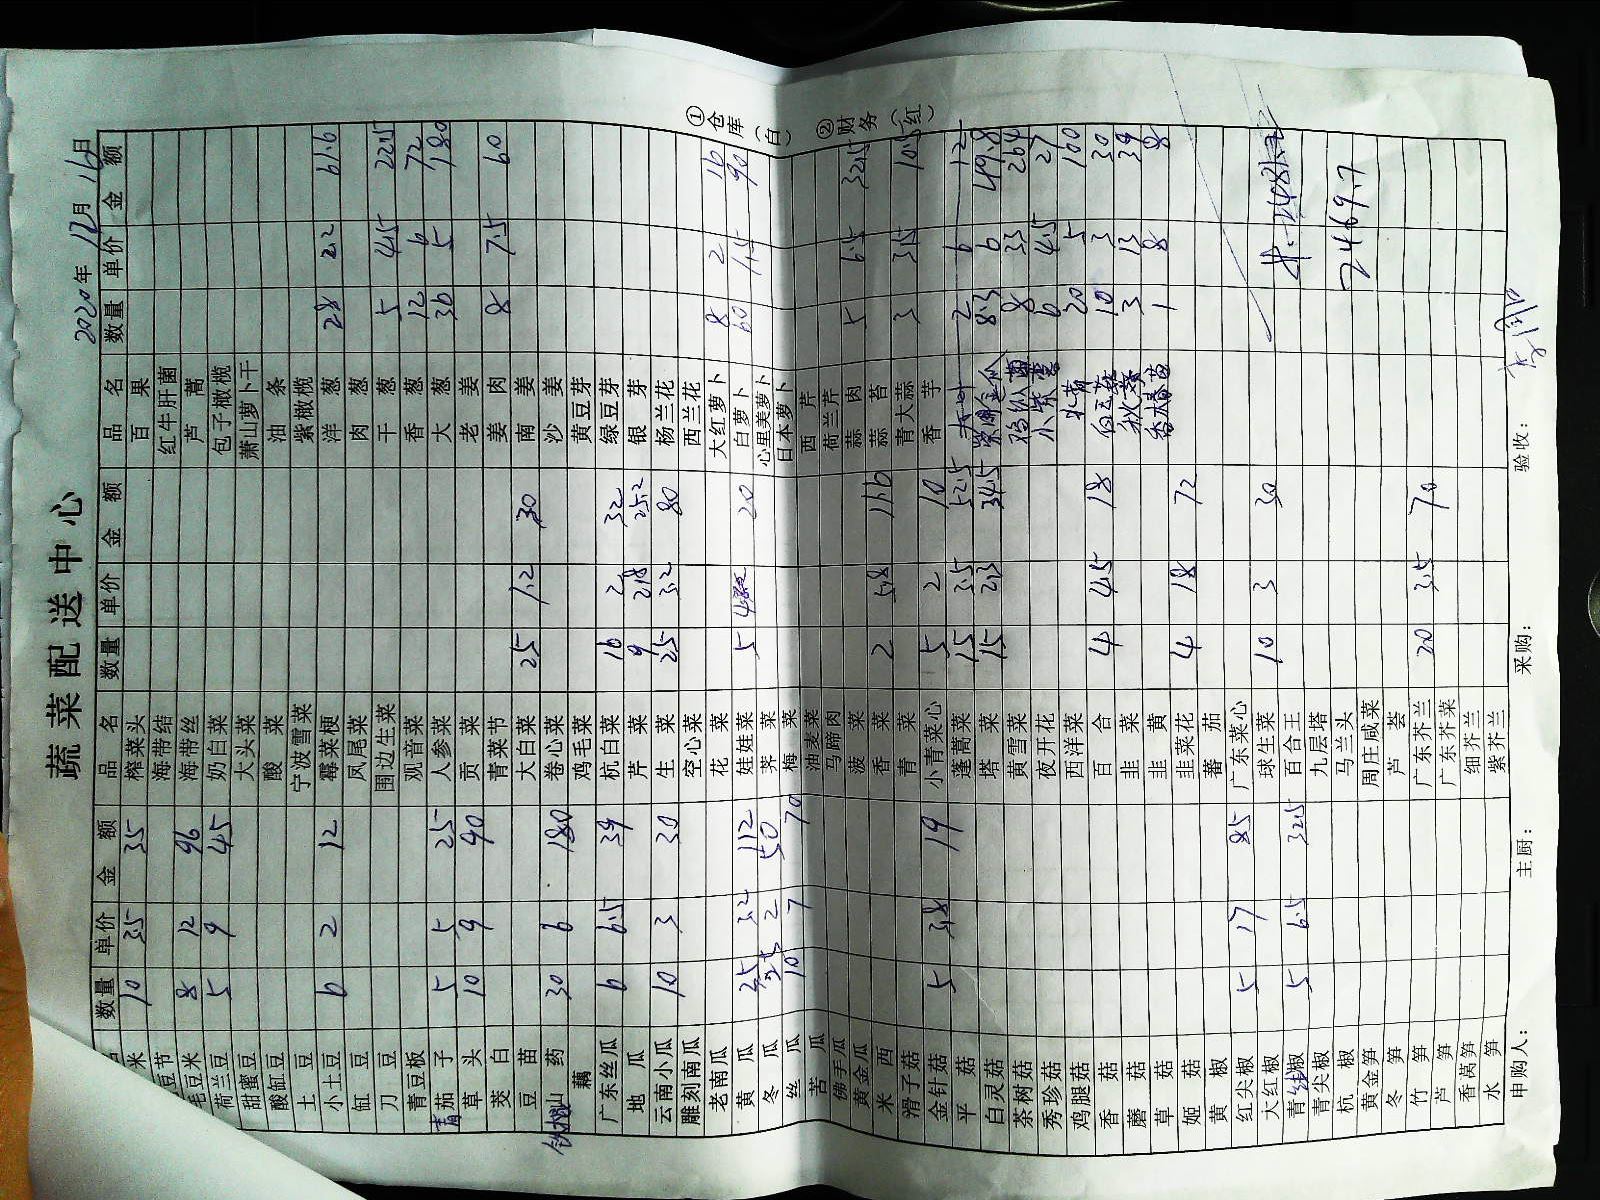 蔬菜配送中心
2020年12月16日
名 数量 单价 金额 品名 数量 单价 金额 品名 数量 单价 金额
米 10 3.5 35 榨菜头 百果
豆节 海带结 红牛肝菌
毛豆米 8 12 96 海带丝 芦蒿
荷兰豆 5 9 45 奶白菜 包子橄榄
甜蜜豆 大头菜 萧山萝卜干
酸缸豆 酸菜 油条
土豆 宁波雪菜 紫橄榄
小土豆 6 2 12 霉菜梗 洋葱 28 2.2 61.6
缸豆 凤尾菜 肉葱
刀豆 围边生菜 干葱 5 4.5 22.5
青豆板 观音菜 香葱 12 6 72
青茄子 5 5 25 人参菜 大葱 36 5 180
草头 10 9 90 贡菜 老姜
茭白 青菜节 姜肉 8 7.5 60
豆苗 大白菜 25 1.2 30 南姜
铁棍山药 30 6 180 卷心菜 沙姜
藕 鸡毛菜 黄豆芽
广东丝瓜 6 6.5 39 杭白菜 16 2 32 绿豆芽
地瓜 芹菜 9 2.8 25.2 银芽
云南小瓜 10 3 30 生菜 25 3.2 80 杨兰花
雕刻南瓜 空心菜 西兰花
老南瓜 花菜 大红萝卜 8 2 16
黄瓜 35 3.2 112 娃娃菜 5 4 20 白萝卜 60 1.5 90
冬瓜 25 2 50 荠菜 心里美萝卜
丝瓜 10 7 70 梅菜 日本萝卜
苦瓜 油麦菜 西芹
佛手瓜 马蹄肉 荷兰芹
黄金瓜 菠菜 蒜肉 5 6.5 32.5
米西 香菜 2 5.8 11.6 蒜苔
滑子菇 青菜 青大蒜 3 3.5 10.5
金针菇 5 3.8 19 小青菜心 5 2 10 香芋
平菇 蓬蒿菜 15 3.5 52.5 2 6 12
白灵菇 塔菜 15 2.3 34.5 8.3 6 49.8
茶树菇 黄雪菜 8 33 264
秀珍菇 夜开花 6 4.5 27
鸡腿菇 西洋菜 20 5 100
香菇 百合 4 4.5 18 10 3 30
蘑菇 韭菜 3 13 39
草菇 韭黄 香椿苗 1 8 8
姬菇 韭菜花 4 18 72
黄椒 蕃茄
红尖椒 5 17 85 广东菜心
大红椒 球生菜 10 3 30
青线椒 5 6.5 32.5 百合王
青尖椒 九层塔
杭椒 马兰头 2469.7
黄金笋 周庄咸菜
冬笋 芦荟
竹笋 广东芥兰 20 3.5 70
芦笋 广东芥菜
香莴笋 细芥兰
水笋 紫芥兰
申购人： 主厨： 采购： 验收：
①仓库（白）
②财务（红）